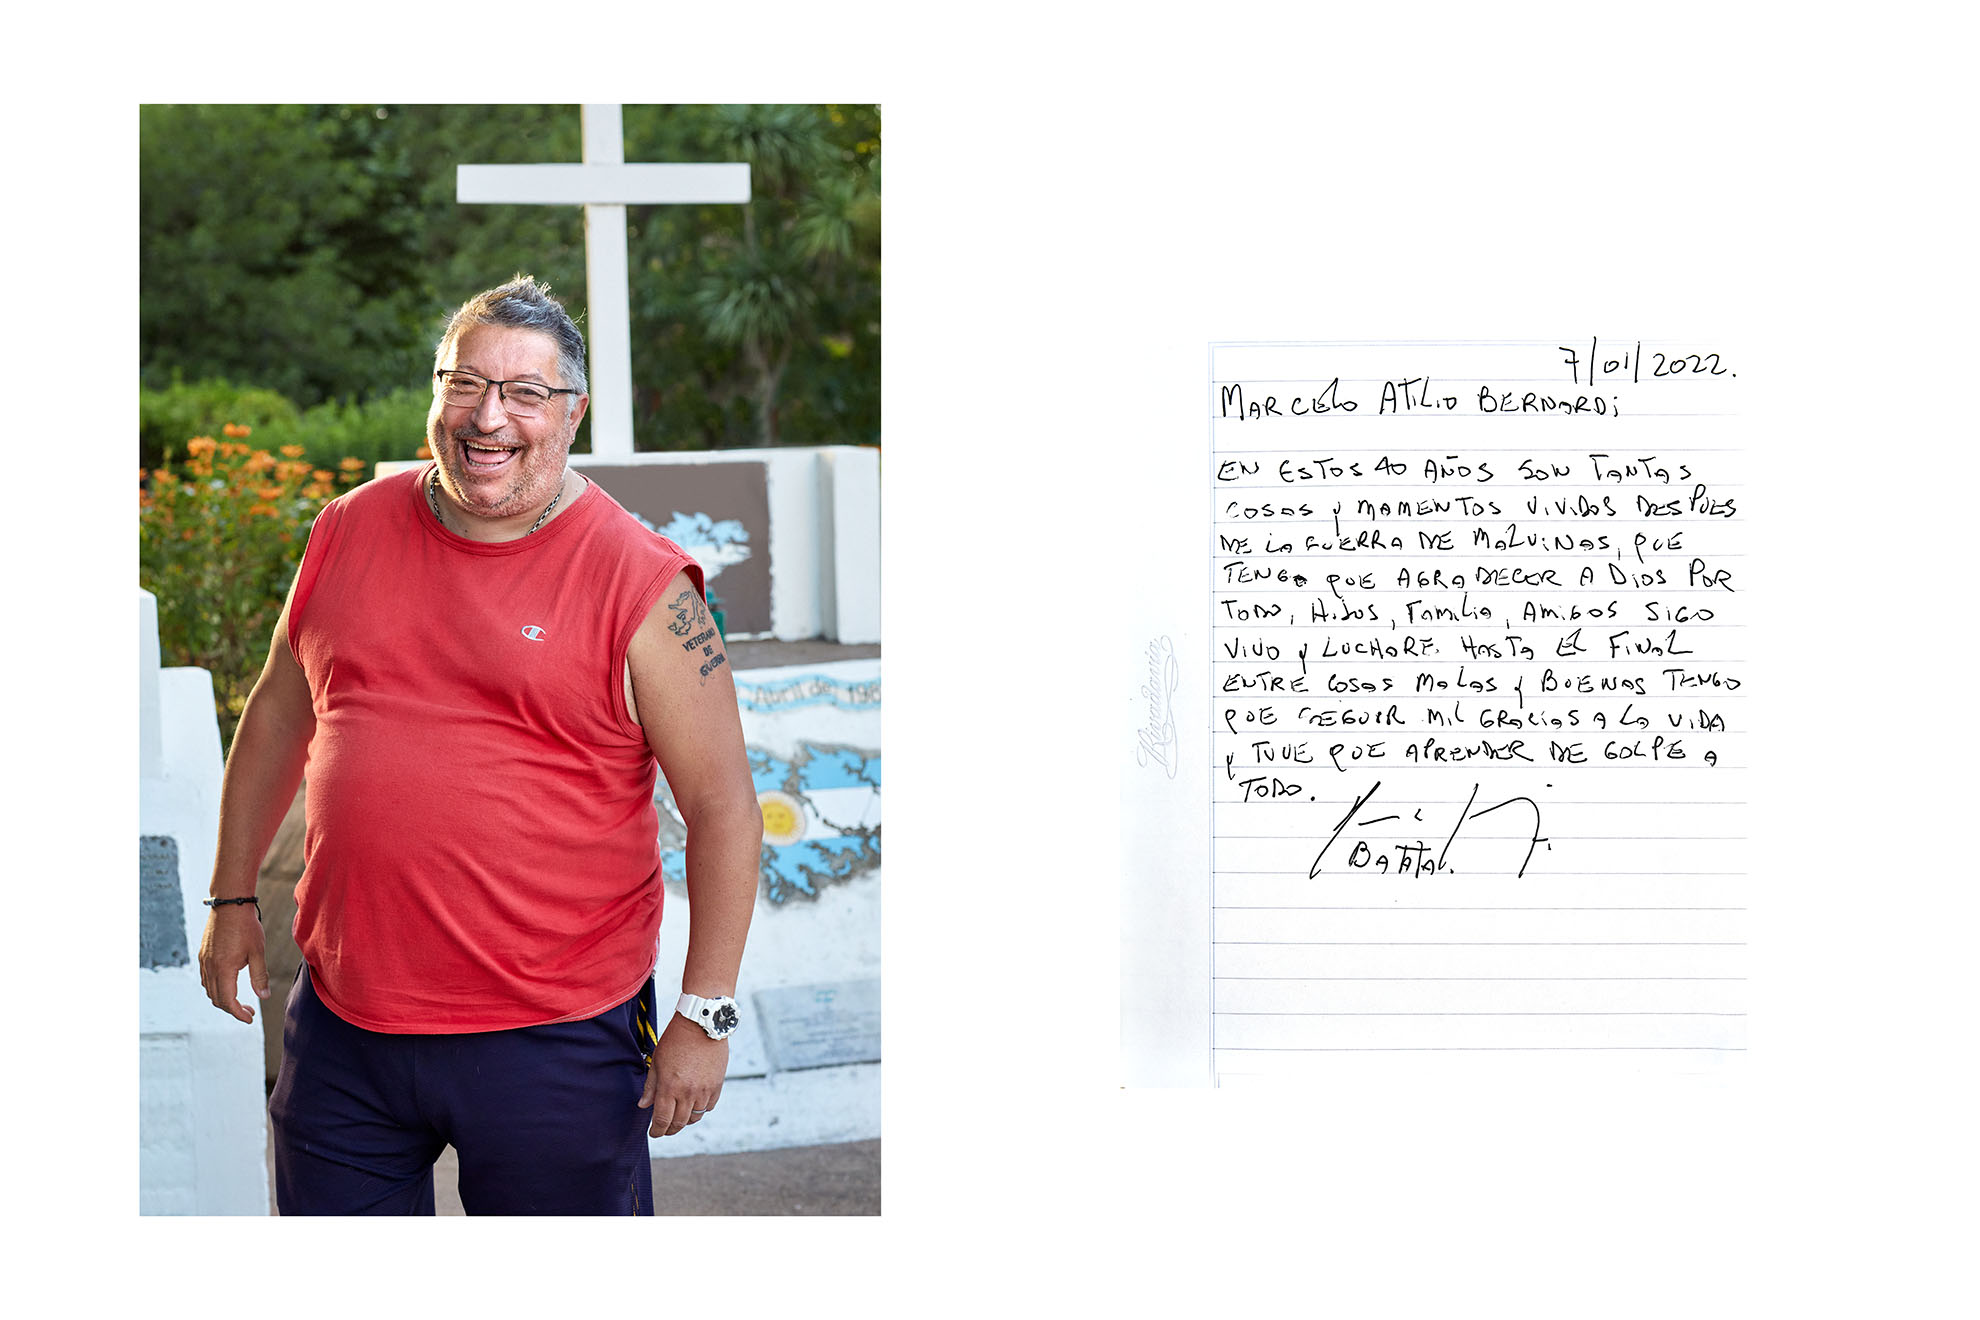 VETERANO
DE
GUERRA
Abril de 198
7/01/2022.
MARCELO ATILIO BERNARDI
EN ESTOS 40 AÑOS SON TANTAS
COSAS Y MAMENTOS VIVIDOS DESPUES
DE LA GUERRA DE MALVINAS, QUE
TENGO QUE AGRADECER A DIOS POR
TODO, HIJOS, FAMILIA, AMIGOS SIGO
VIVO Y LUCHARE HASTA EL FINAL
ENTRE COSAS MALAS Y BUENAS TENGO
QUE SEGUIR MIL GRACIAS A LA VIDA
Y TUVE QUE APRENDER DE GOLPE A
TODO.
BATATA.
Rivadavia